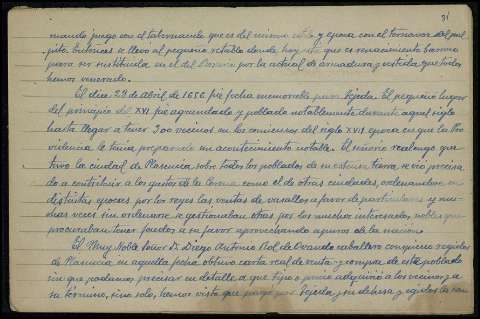 31
mando juego con el tabernaculo que es del mismo estilo y epoca con el tornavoz del pul-
pito. Entonces se llevó al pequeño retablo donde hoy está que es renacimiento barroco
para ser sustituida en el del Rosario por la actual de armadura y vestida que todos
hemos venerado.
El dia 29 de Abril de 1656 fué fecha memorable para Tejeda. El pequeño lugar
del principio del XVI fué agrandado y poblado notablemente durante aquel siglo
hasta llegar a tener 300 vecinos en los comienzos del siglo XVII epoca en que la Pro-
videncia le tenia preparado un acontecimiento notable. El señorio realengo que
tuvo la ciudad de Plasencia sobre todos los poblados de su extensa tierra, se vio precisa-
do a contribuir a los gastos de la Corona como el de otras ciudades, ordenandose en
distintas epocas por los reyes las ventas de vasallos a favor de particulares y mu-
chas veces sin ordenarse se gestionaban otras por los muchos interesados nobles que
procuraban tener feudos a su favor aprovechando apuros de la nación.
El Muy Noble señor D. Diego Antonio Rol de Ovando caballero con quinto regidor
de Plasencia en aquella fecha obtuvo carta real de venta y compra de este poblado
sin que podamos precisar en detalle a que tipo o precio adquirió a los vecinos y a
su término, sino solo, hemos visto que pagó por Tejeda, su dehesa y egidos la can-